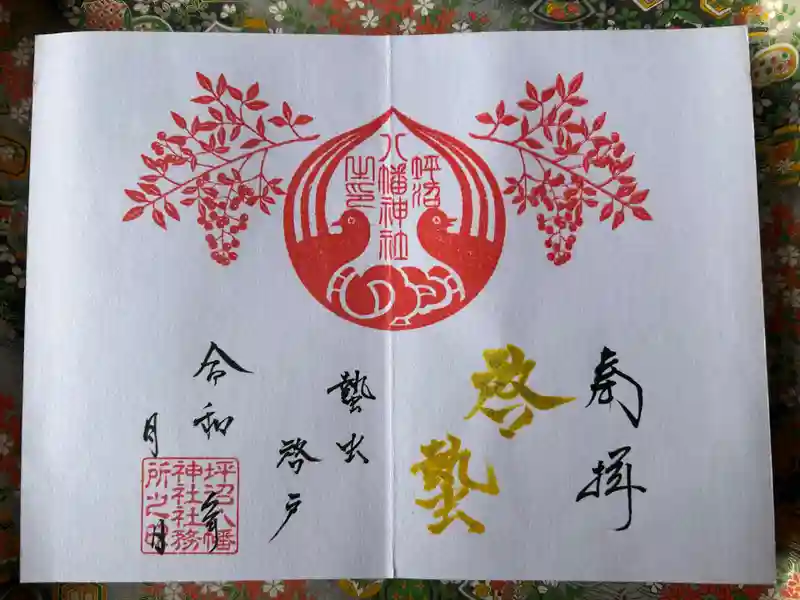 奉拝
啓蟄
坪沼
八幡神社
之印
蟄虫
啓戸
令和 年
月 日
坪沼八幡
神社社務
所之印